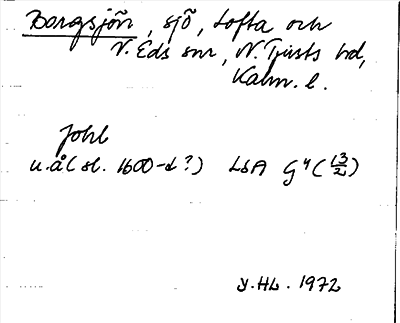 Borgsjön, sjö, Lofta och
V. Eds snr, N. Tjusts hd,
Kalm. l.
johl
u.å (sl. 1600-t?) LSA G⁴ (13/2)
Y.HL. 1972